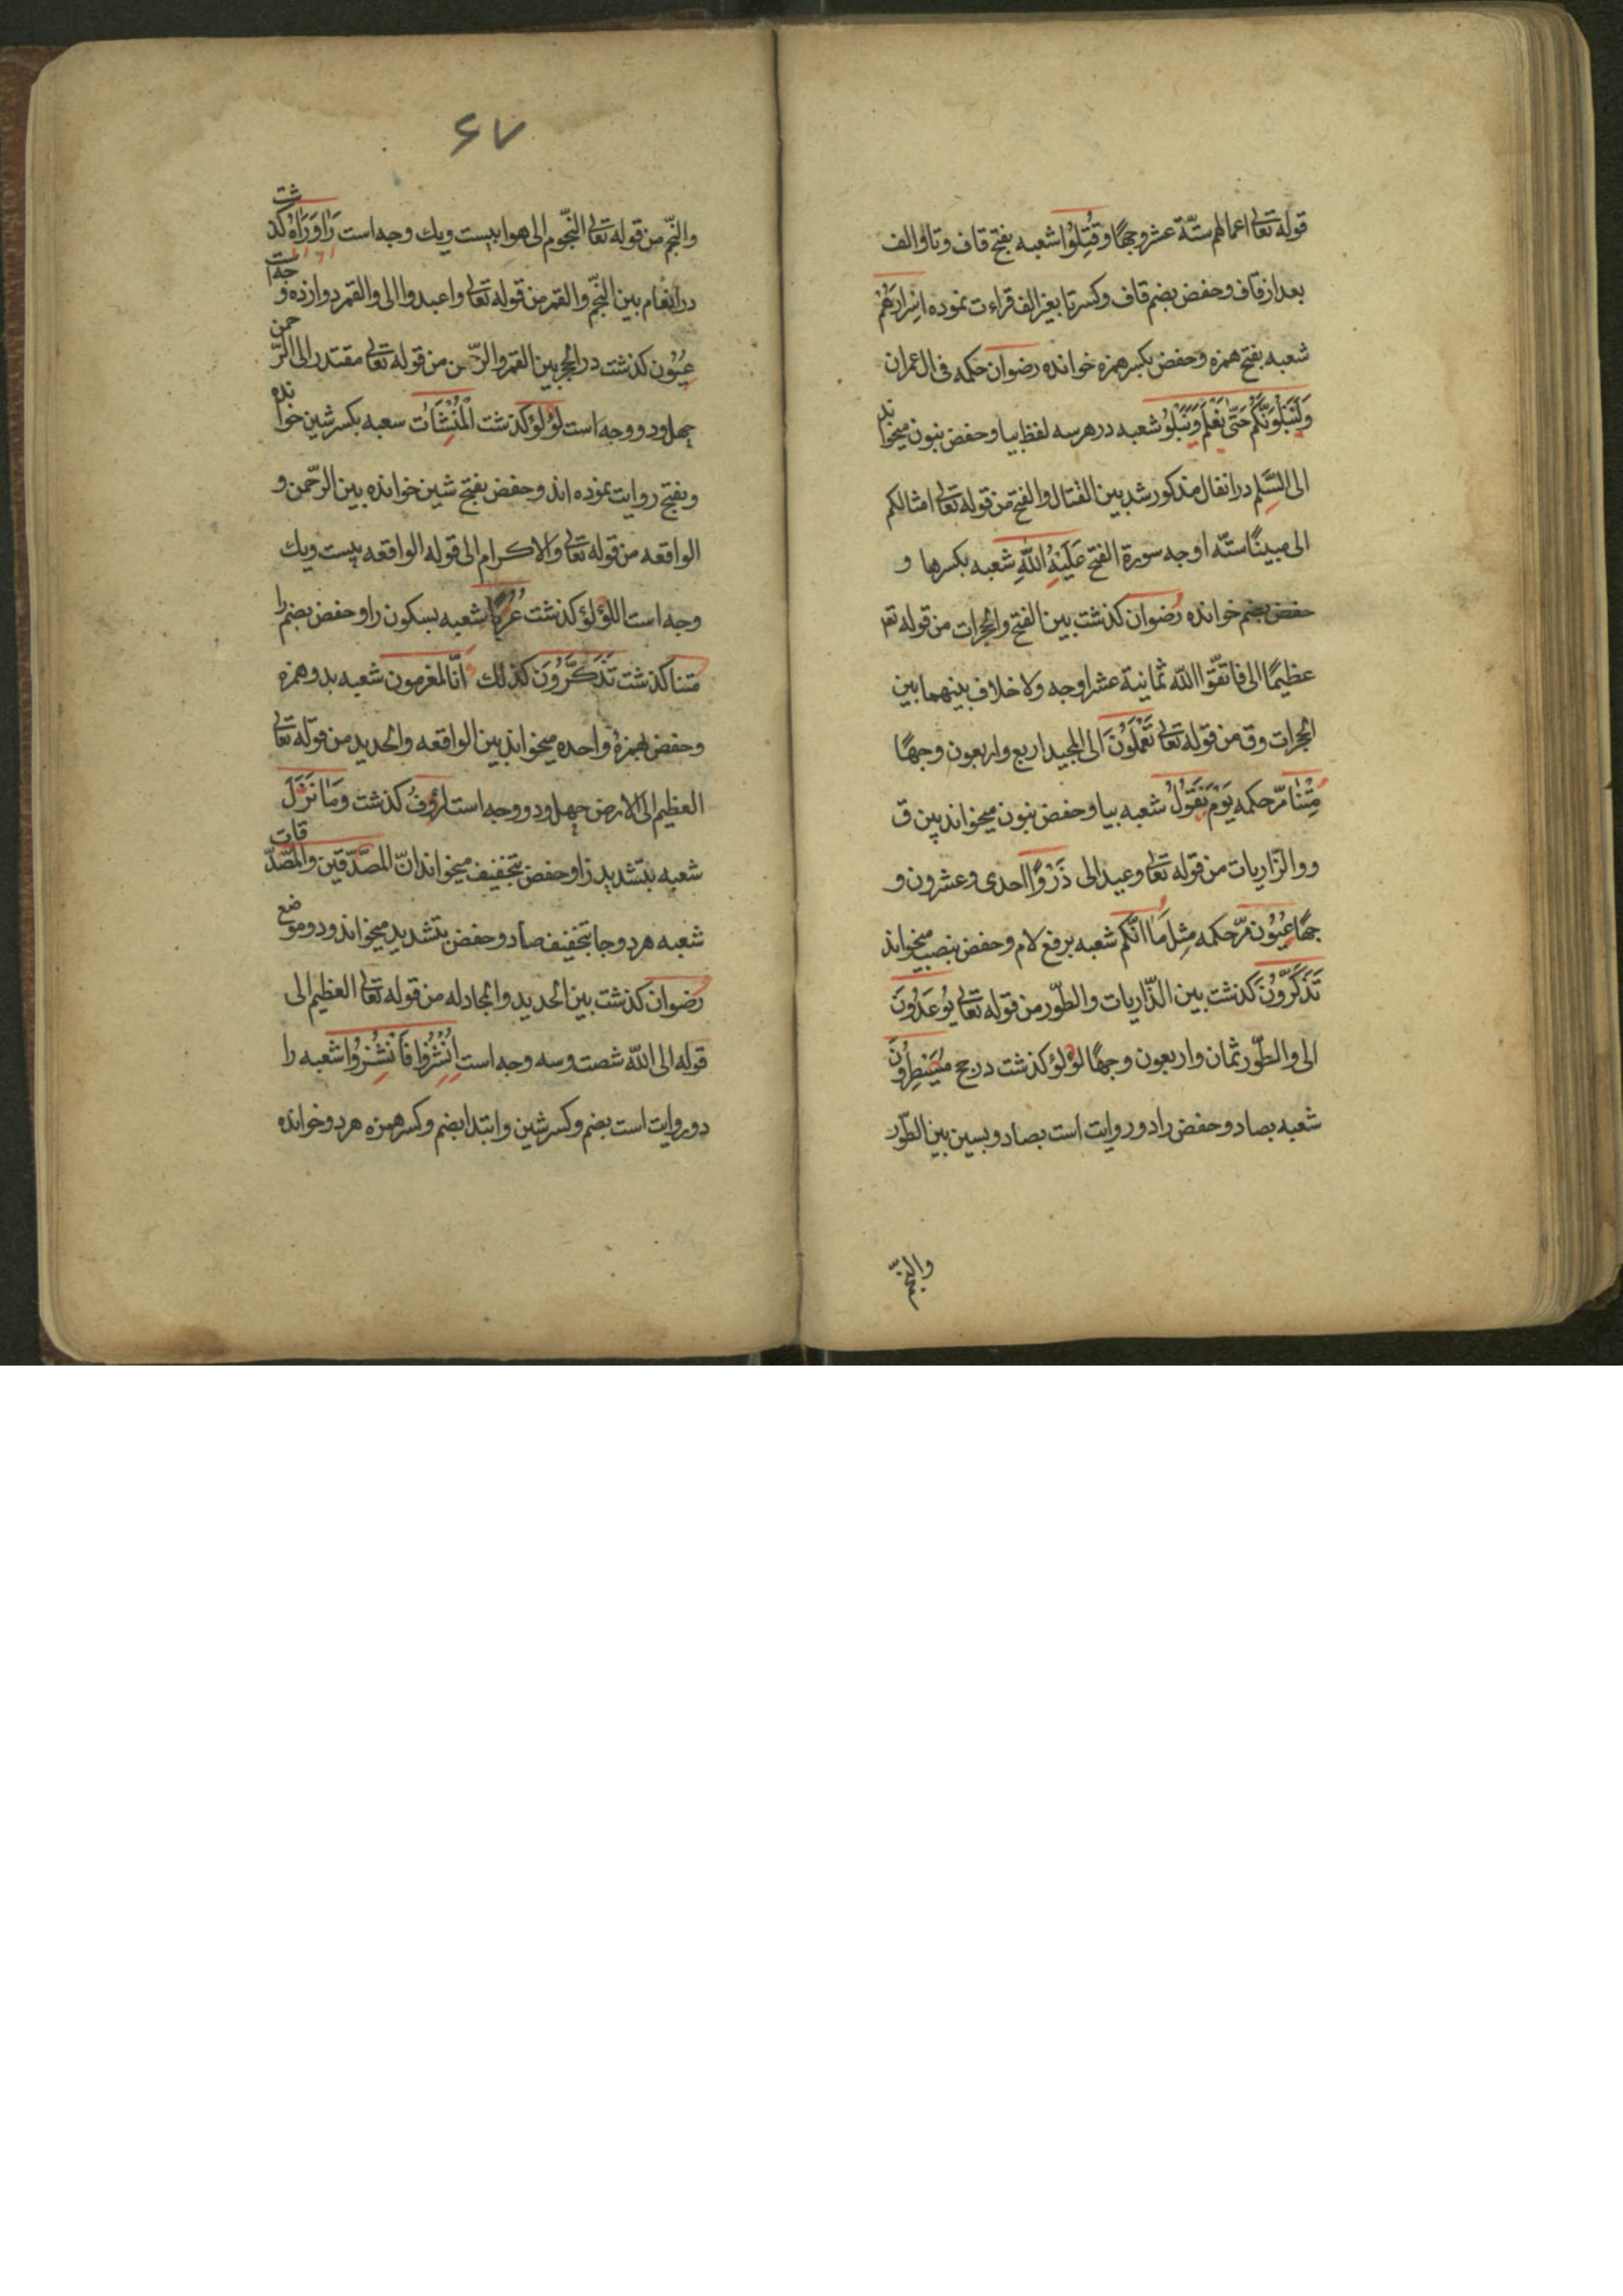 قوله تعالی اعمالهم ستّة عشر وجهًا وقُتِلُوا شعبه بفتح قاف وتا والف
بعد از قاف وحفض بضم قاف وکسر تا بغیر الف قراءت نموده اِسْرَارَهُمْ
شعبه بفتح همزه وحفض بکسر همزه خوانده رضوان حکمه فی ال عمران
وَلَنَبْلُوَنَّكُمْ حَتّٰى نَعْلَمَ وَنَبْلُوَ شعبه در هر سه لفظ بیا وحفض بنون میخواند
الی السَّلِم در انفال مذکور شد بین القتال والفتح من قوله تعالی امثالکم
الی مبینًا ستّه اوجه سورة الفتح عَلَیْهُ اللّٰهَ شعبه بکسرها و
حفض بضم خوانده رضوان کذشت بین الفتح والحجرات من قوله تعا
عظیمًا الی فاتقوا اللّٰه ثمانیة عشر اوجه ولا خلاف بینهما بین
الحجرات وق من قوله تعالی تَعْمَلُوْنَ الی المجید اربع واربعون وجهًا
مِتْنَا مرّ حکمه یَوْمَ نَقُوْلُ شعبه بیا وحفض بنون میخواند بین ق
و والذّاریات من قوله تعالی وعید الی ذَرْوًا احدی وعشرون و
جهًا عُیُوْن مرّ حکمه مِثْلَ مَا انّکم شعبه برفع لام وحفض بنصب میخواند
تَذَکَّرُوْنَ کذشت بین الذّاریات والطّور من قوله تعالی یُوْعَدُوْنَ
الی والطّور ثمان واربعون وجهًا لؤلؤ کذشت در حج مُصَیْطِرُوْنَ
شعبه بصاد وحفض را دو روایت است بصاد وبسین بین الطّور
والنّجم
۶۷
والنّجم من قوله تعالی النّجوم الی هوا بیست ویك وجه است رَاٰ وَرَاٰهُ کذشت
در انعام بین النّجم والقمر من قوله تعالی واعبدوا الی والقمر دوازده وجه است
عُیُوْن کذشت در الحجر بین القمر والرّحمن من قوله تعالی مقتدر الی الرّحمن
چهل ودو وجه است لؤلؤ کذشت الْمُنْشَاٰت سعبه بکسر شین خوانده
وبفتح روایت نموده اند وحفض بفتح شین خوانده بین الرّحمن و
الواقعه من قوله تعالی والاکرام الی قوله الواقعه بیست ویك
وجه است اللؤلؤ کذشت عُرُبًا شعبه بسکون را وحفض بضم را
مِتنا کذشت تَذَکَّرُوْنَ کذلك أئنّا لمغرمون شعبه بدو همزه
وحفض بهمزهٔ واحده میخواند بین الواقعه والحدید من قوله تعالی
العظیم الی الارض چهل ودو وجه است لرؤفٌ کذشت وَمَا نَزَلَ
شعبه بتشدید زا وحفض بتخفیف میخواند انّ المصّدّقین والمصّدّقات
شعبه هر دو جا بتخفیف صاد وحفض بتشدید میخواند ودو موضع
رضوان کذشت بین الحدید والمجادله من قوله تعالی العظیم الی
قوله الی اللّٰه شصت وسه وجه است اُنْشُزُوْا فَانْشُزُوْا شعبه را
دو روایت است بضم وکسر شین وابتدا بضم وکسر همزه هر دو خوانده